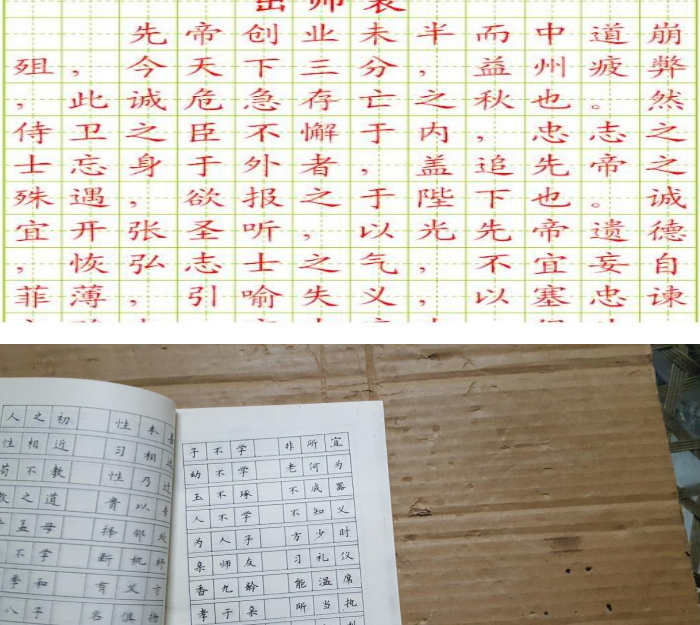 出师表
先帝创业未半而中道崩
殂，今天下三分，益州疲弊
，此诚危急存亡之秋也。然
侍卫之臣不懈于内，忠志之
士忘身于外者，盖追先帝之
殊遇，欲报之于陛下也。诚
宜开张圣听，以光先帝遗德
，恢弘志士之气，不宜妄自
菲薄，引喻失义，以塞忠谏
人之初 性本
性相近 习相
苟不教 性乃
教之道 贵以
孟母 择邻处
不学 断机杼
季和 有义方
八子 名俱扬
子不学 非所宜
幼不学 老何为
玉不琢 不成器
人不学 不知义
为人子 方少时
亲师友 习礼仪
香九龄 能温席
孝于亲 所当执